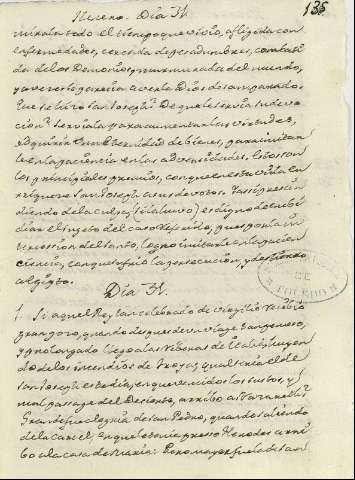 Henero. Dia 31.
135
mirate todo el tiempo que vivio, afligida con
enfermedades, cercada de pesadumbres, combati
da de los Demonios, y murmurada del mundo,
y a veces parecia a verla Dios desamparado.
que la devo
cion le servia para aumentar las virtudes,
bienes, para imitar
le en la paciencia en las adversidades. Estos son
los principales premios, con que en esta vida en
riquece San Joseph a sus devotos. Y assi prescin
diendo de la culpa, es digno de embi
diar el sugeto del caso referido, que por la in
tercession del Santo, logro imitarle en la pacien
cia, con que sufrio la persecucion, y destierro
a Egipto.
Dia 31.
Si aquel Rey tan celebrado de Virgilio recibio
gran gozo, quando despues de un viage tan penoso,
y prolongado llego a las riberas de Italia, huyen
do de los incendios de Troya, qual seria el de
San Joseph este dia, en que vencidos los sustos, y
mal passage del Desierto, arribo a
Grande fue la alegria de San Pedro, quando saliendo
de la carcel, en que le tenia preso Herodes arri
bo a la casa de Maria: Pero mayor fue la de San